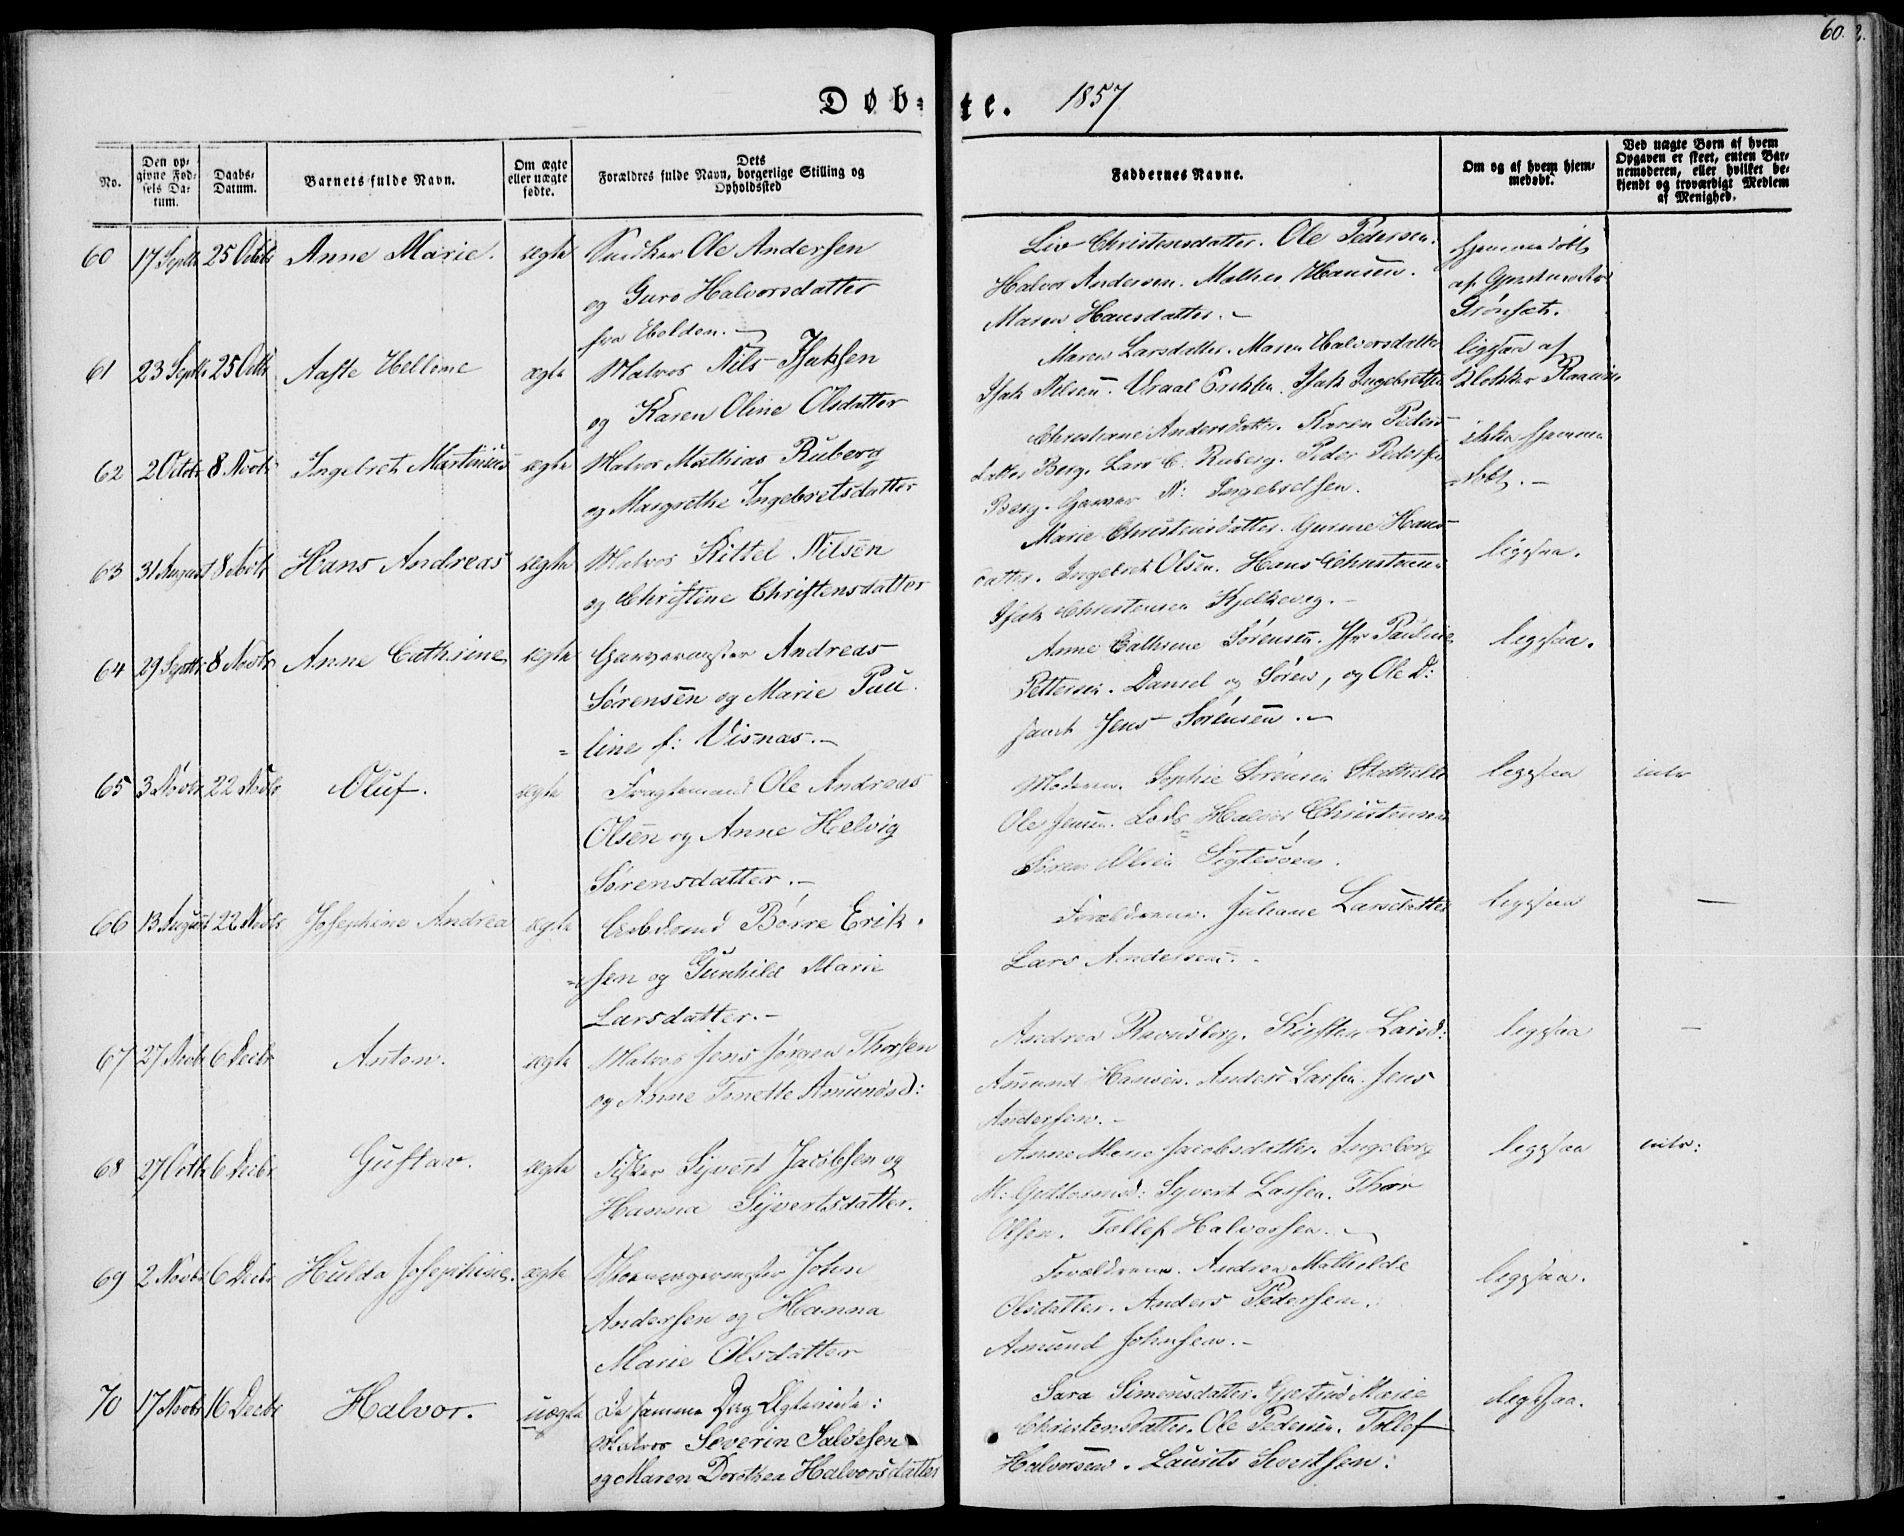 60. 2.
Døb- te. 1857
No. Den opgivne Fødsels Datum. Daabs-Datum. Barnets fulde Navn. Om ægte eller uægte fødte. Dets Forældres fulde Navn, borgerlige Stilling og Opholdssted Faddernes Navne. Om og af hvem hjemmedøbt. Ved uægte Børn af hvem Opgaven er skeet, enten Barnemoderen, eller hvilket bekjendt og troværdigt Medlem af Menighed.
60 17 Septbr 25 Octobr Anne Marie. ægte Snedker Ole Andersen
og Guro Halvorsdatter
fra
Liv Christensdatter. Ole Pedersen.
Halvor Andersen. Mathea Hansen.
Maren Hansdatter. -
hjemmedøbt
af
61 23 Septbr 25 Octbr Aaste Helline ægte Matros Nils Isaksen
og Karen Oline Olsdatter
Maren Larsdatter. Maren Halvorsdatter
Isak Nilsen. Vraal Eriksen. Isak Ingebretsen
ligesaa af
Klokker
62 2 Octobr 8 Novbr Ingebret Martinius ægte Matros Mathias Ruberg
og Margrethe Ingebretsdatter
Christiane Andersdatter. Karen Peders-
datter Berg. Lars C. Ruberg. Peder Pedersen
Berg. Garver N: Ingebretsen.
ikke hjemme
døbt. -
63 31 August 8 Novbr Hans Andreas ægte Matros Kittel Nilsen
og Christine Christensdatter
Marie Christensdatter. Gunne Hans-
datter. Ingebret Olsen. Hans Christensen
Isak Christensen
ligesaa.
64 29 Septbr 8 Novbr Anne Cathrine ægte Garvermester Andreas
Sørensen og Marie Pau-
line f: Visnæs. -
Anne Cathrine Sørensen. Jfr Pauline
Pettersen. Daniel og Søren, og Ole D:
samt Jens Sørensen. -
ligesaa.
65 3 Novbr 22 Novbr Oluf. ægte Fragtemand Ole Andreas
Olsen og Anne Helvig
Sørensdatter. -
Moderen. Sophie Sørensen
Ole Jensen. Lods Halvor Christensen
Søren Olsen
ligesaa
66 13 August 22 Novbr Josephine Andrea ægte Arbdsmd Børre Erik-
sen og Gunhild Marie
Larsdatter. -
Forældrene. Juliane Larsdatter
Lars Andersen. -
ligesaa —
67 27 Novbr 6 Decbr Anton. ægte Matros Jens Jørgen Thorsen
og Anne Tonette Amundsd:
Andrea Ravnsborg. Kirsten Larsd:
Amund Hansen. Anders Larsen. Jens
Andersen. -
ligesaa —
68 27 Octbr 6 Decbr Gustav. ægte Fisker Syvert Jacobsen og
Hanna Syvertsdatter.
Anne Marie Jacobsdatter. Ingeborg
M: Syvert Larsen. Thor
Olsen. Tollef Halvorsen. -
ligesaa
69 2 Novbr 6 Decbr Hulda Josephine. ægte Skomagermester John
Andersen og Hanna
Marie Olsdatter
Forældrene. Andrea Mathilde
Olsdatter. Anders Pedersen.
Amund Johnsen. -
ligesaa.
70 17 Novbr 16 Decbr Halvor. uægte De samme Dag Ægteviede:
Matros Severin Salvesen
og Maren Dorthea Halvorsdatter
Sara Simonsdatter. Gertrud Marie
Christensdatter. Ole Pedersen. Tollef
Halvorsen. Laurits Sivertsen:
ligesaa.